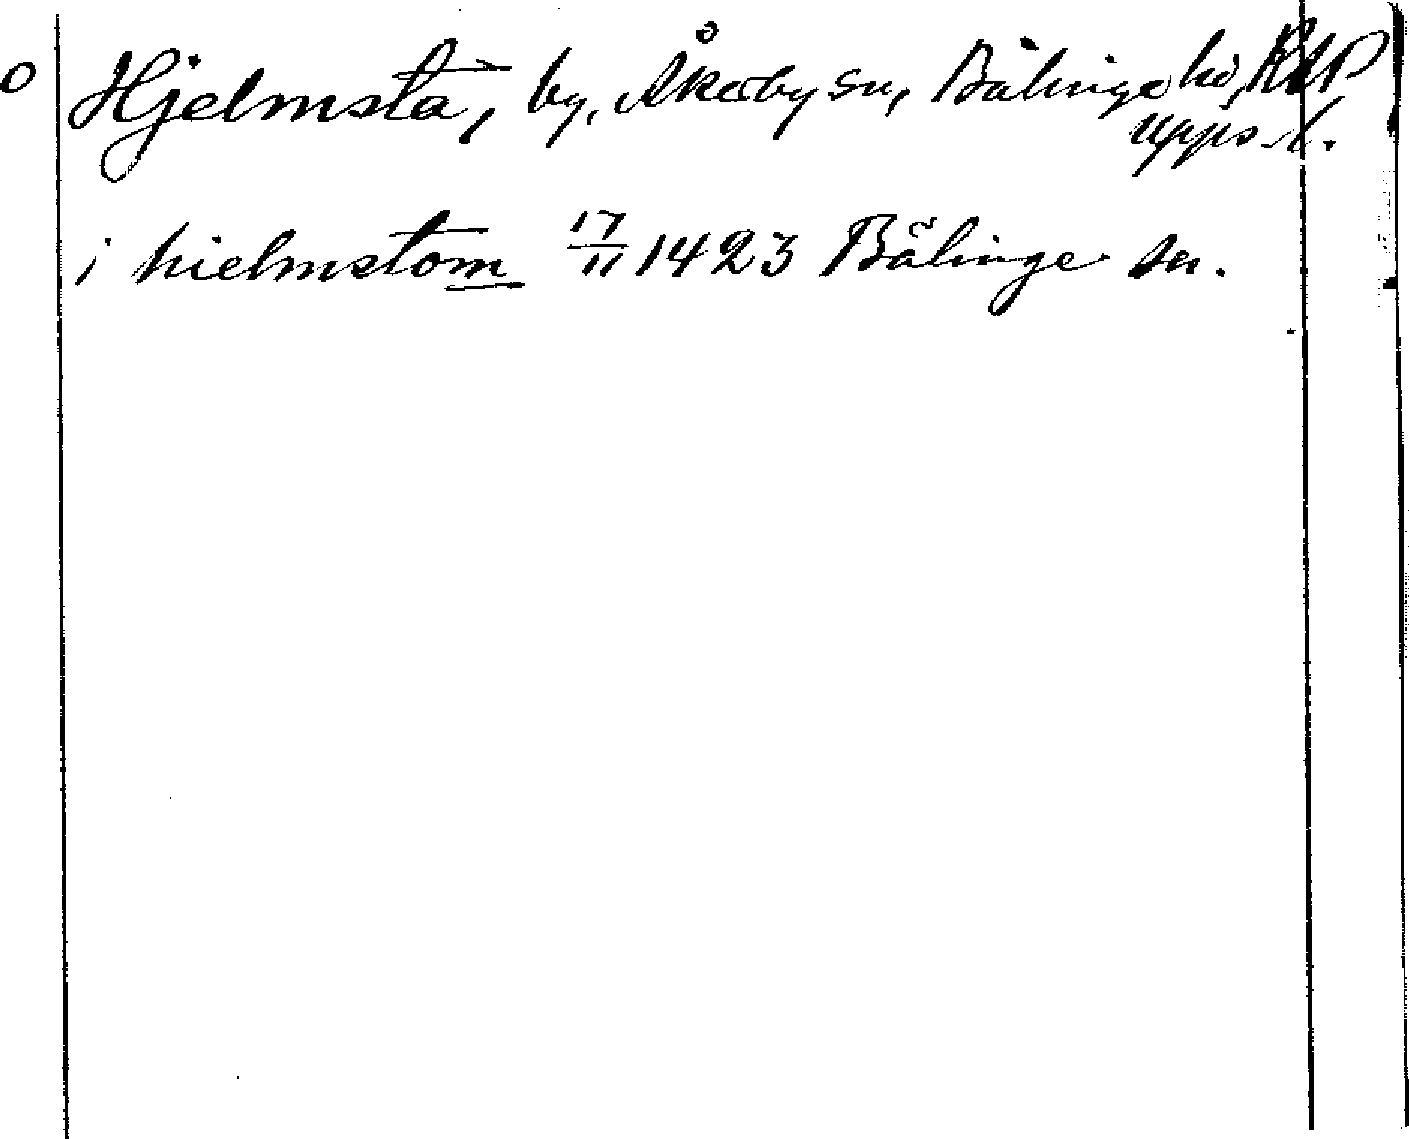 o Hjelmsta, by, Åkerby sn, Bälinge hd, RAP
Upps. l.
i hielmstom 17/11 1423 Bälinge sn.